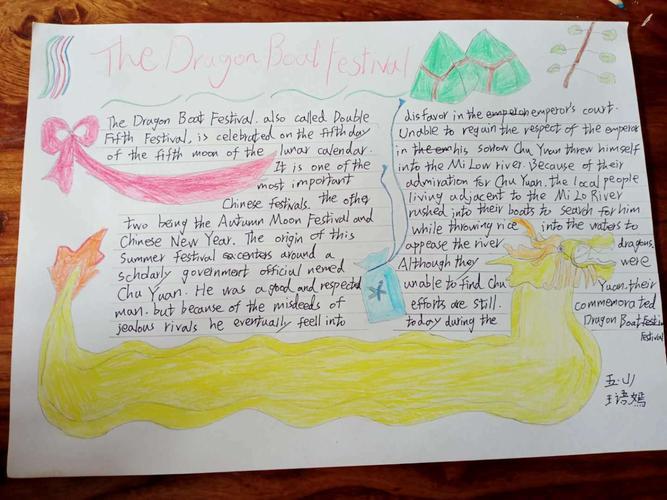 The Dragon Boat Festival
The Dragon Boat Festival. also called Double
Fifth Festival, is celebrated on the fifth day
of the fifth moon of the lunar calendar.
It is one of the
most important
Chinese festivals. the other
two being the Autumn Moon Festival and
Chinese New Year. The origin of this
summer festival centers around a
scholarly government official nemed
Chu Yuan. He was a good and respected
man. but because of the misdeeds of
jealous rivals he eventually feell into
disfavor in the emperor's court.
Unable to regain the respect of the emperor
in the his sorrow Chu Yuan threw himself
into the Mi Low river. Because of their
admiration for Chu Yuan. the local people
living adjacent to the Mi Lo River
rushed into their boats to search for him
while throwing rice into the waters to
appease the river dragons.
Although they were
unable to find Chu Yuan. their
efforts are still commemorated
today during the Dragon Boat
Festival
五.山